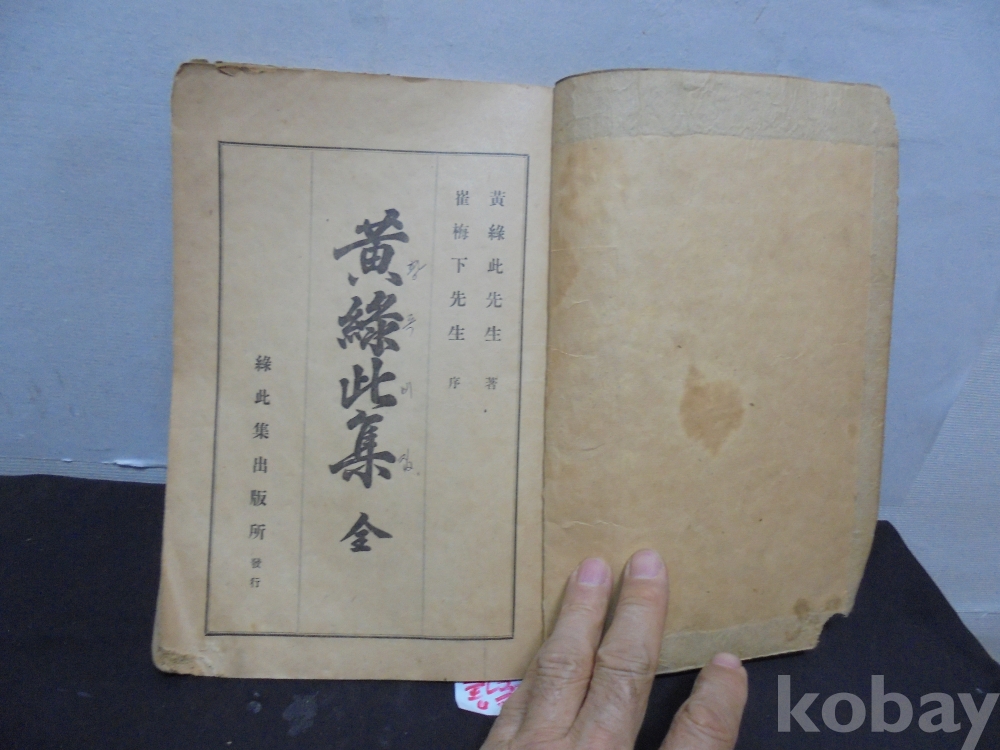 黃綠此先生 著
崔梅下先生 序
黃綠此集 全
綠此集出版所 發行
kobay